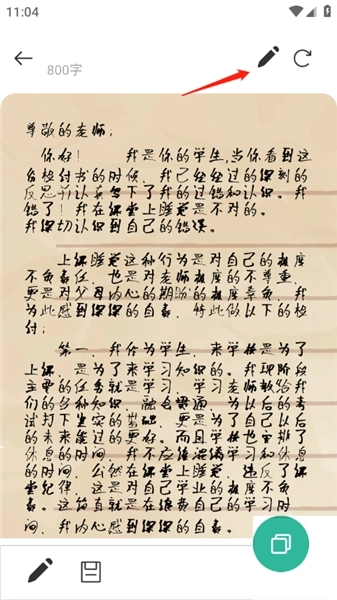 11:04
800字
尊敬的老师,
你好! 我是你的学生,当你看到这
份检讨书的时候,我已经经过的深刻的
反思并认真写下了我的过错和认识。我
错了!我在课堂上睡觉是不对的。
我深切认识到自己的错误。
上课睡觉这种行为是对自己的极度
不负责任,也是对老师极度的不尊重,
更是对父母内心的期盼的极度辜负,我
为此感到深深的自责,特此做以下的检
讨;
第一,我作为学生,来学校是为了
上课,是为了来学习知识的。我现阶段
主要的任务就是学习,学习老师教给我
们的各种知识,融会贯通,为以后的考
试打下坚实的基础,更是为了自己以后
的未来能过的更好。而且学校也安排了
休息的时间,我不应该混淆学习和休息
的时间,公然在课堂上睡觉,违反了课
堂纪律,这是对自己学业的极度不负
责。这简直就是在浪费自己的学习时
间,我内心感到深深的自责。